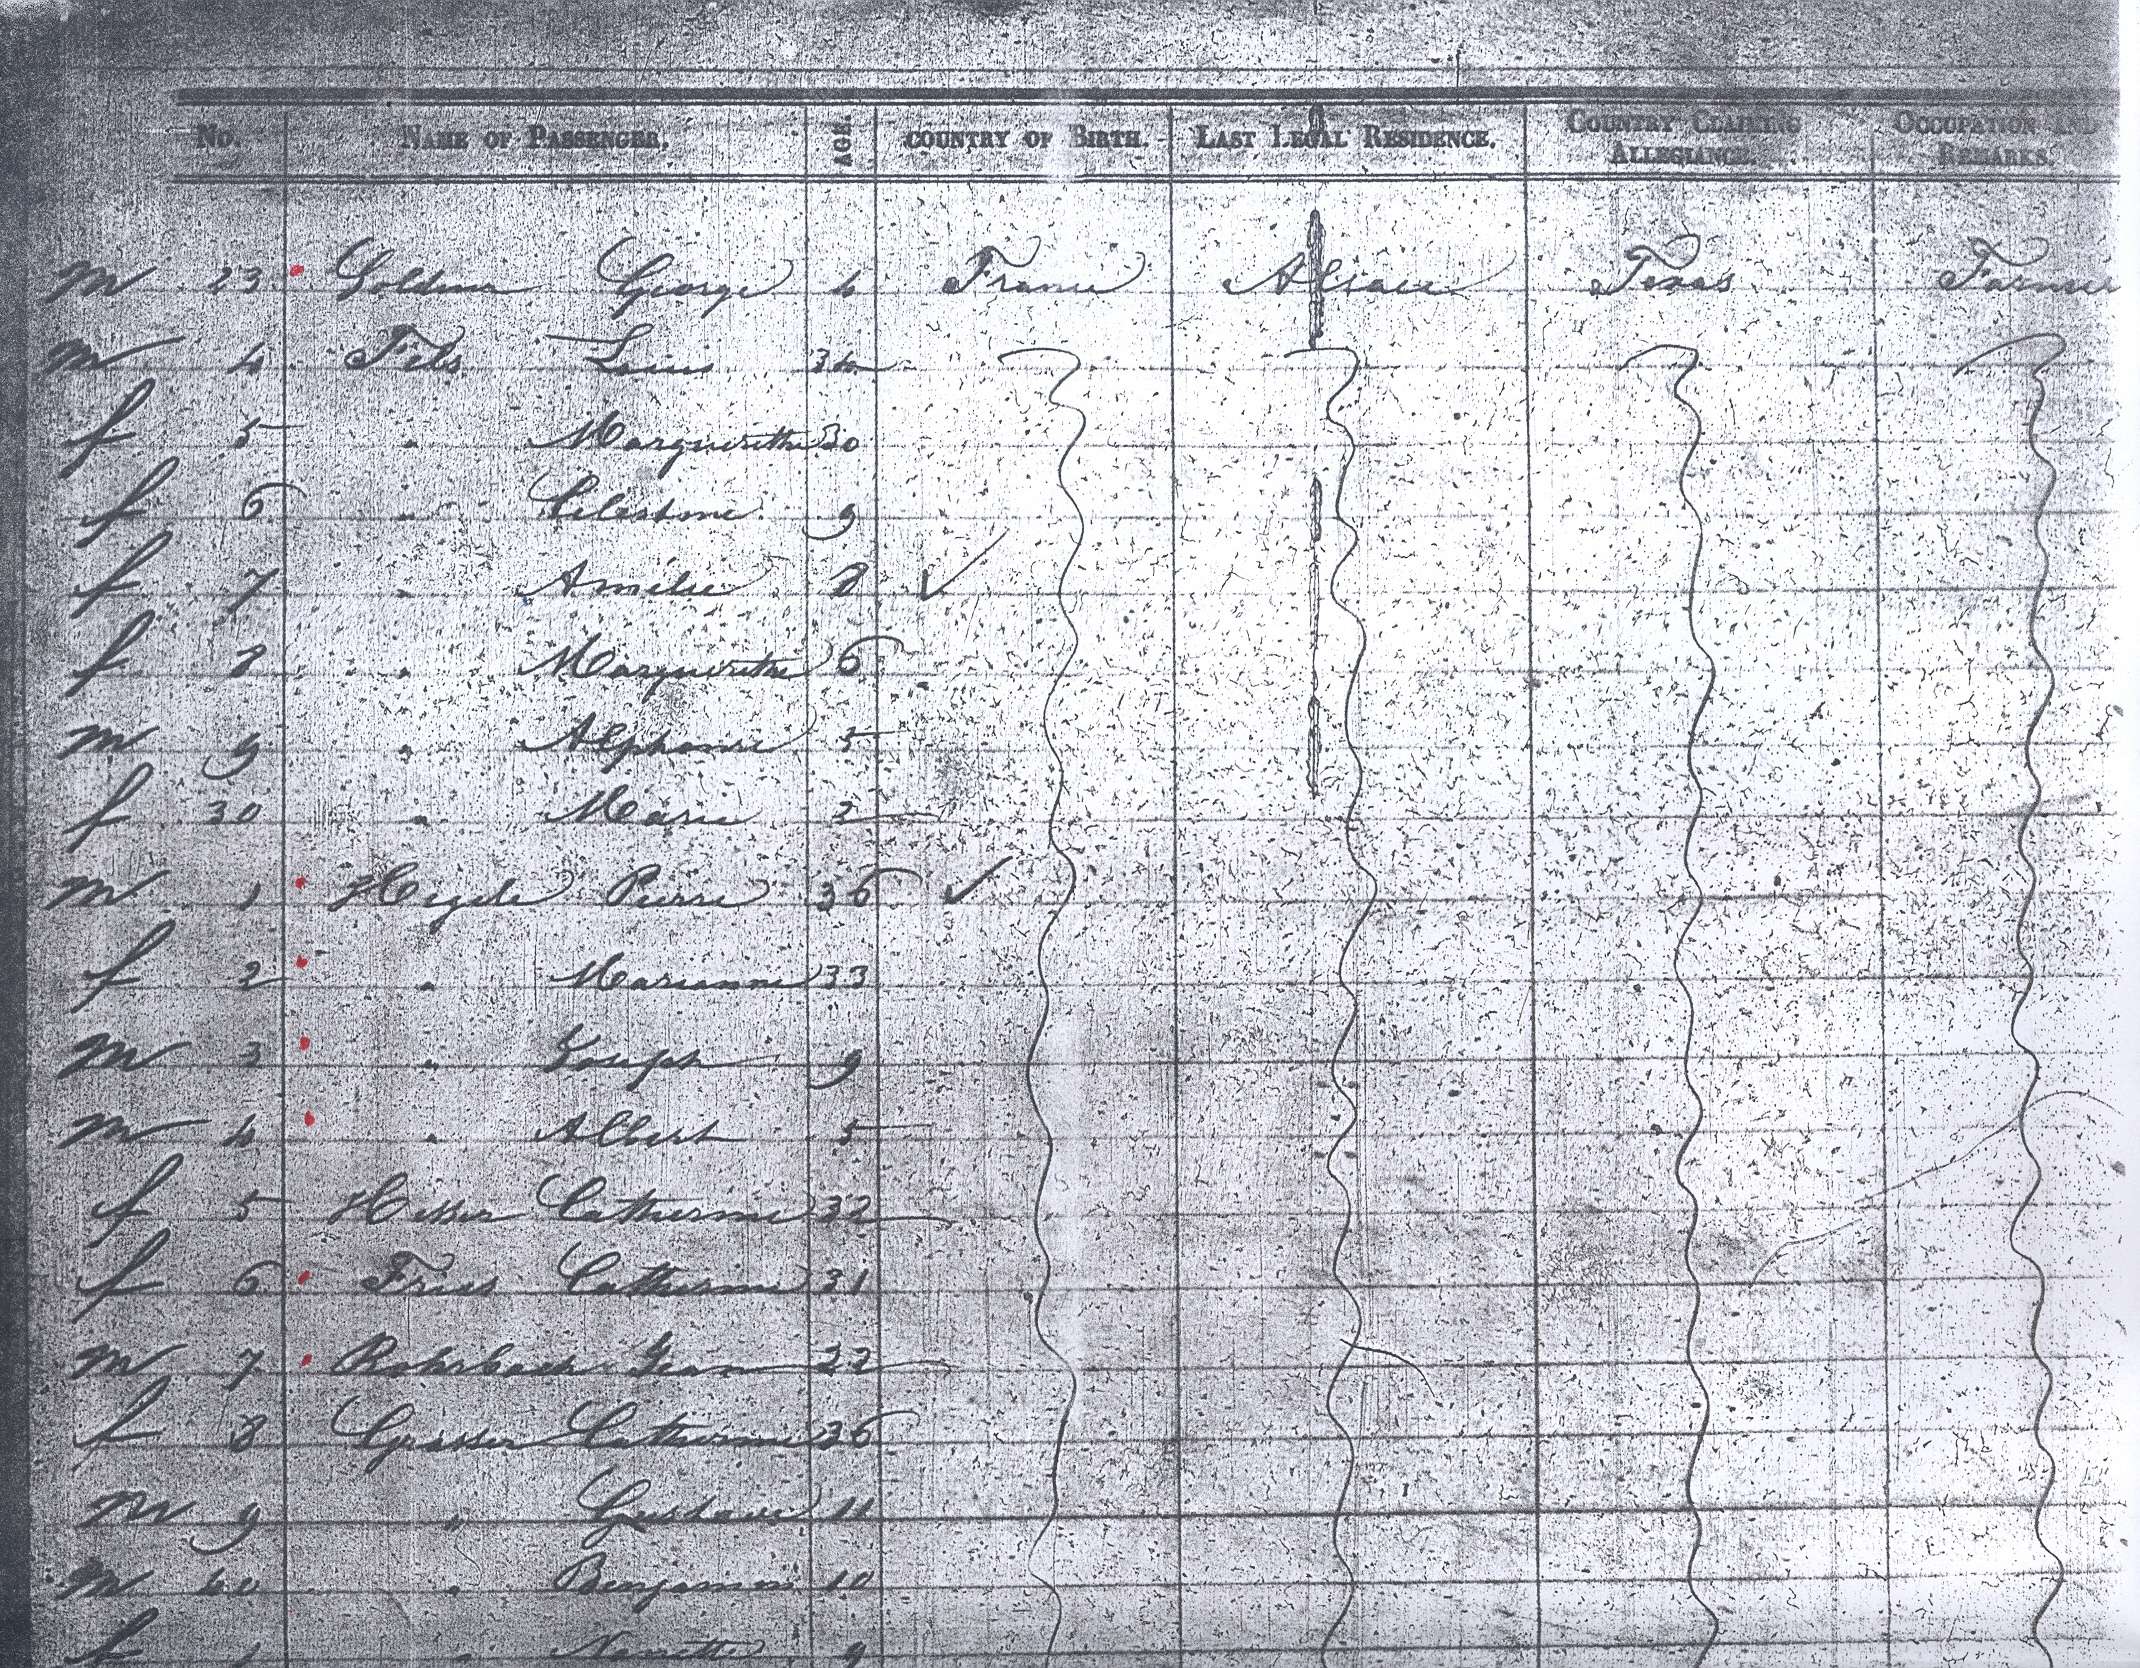 No. NAME OF PASSENGER. AGE. COUNTRY OF BIRTH. LAST LEGAL RESIDENCE. COUNTRY CLAIMING ALLEGIANCE. OCCUPATION AND REMARKS.
M 23 George 4 France Alsace Texas Farmer
M 4 Fels Louis 34
f 5 " Marguerithe 30
f 6 " Celestine 9
f 7 " Amélie 8
f 8 " Marguerithe 6
M 9 " Alphonse 5
f 30 " Marie 2
M 1 Hegde Pierre 36
f 2 " Marianne 33
M 3 " Joseph 9
M 4 " Albert 5
f 5 Hesser Catherine 32
f 6 Fries Catherine 31
M 7 Rohrbach Jean 22
f 8 Grasser Catherine 36
M 9 " Gustave 11
M 40 " Benjamin 10
f 1 " Nanette 9